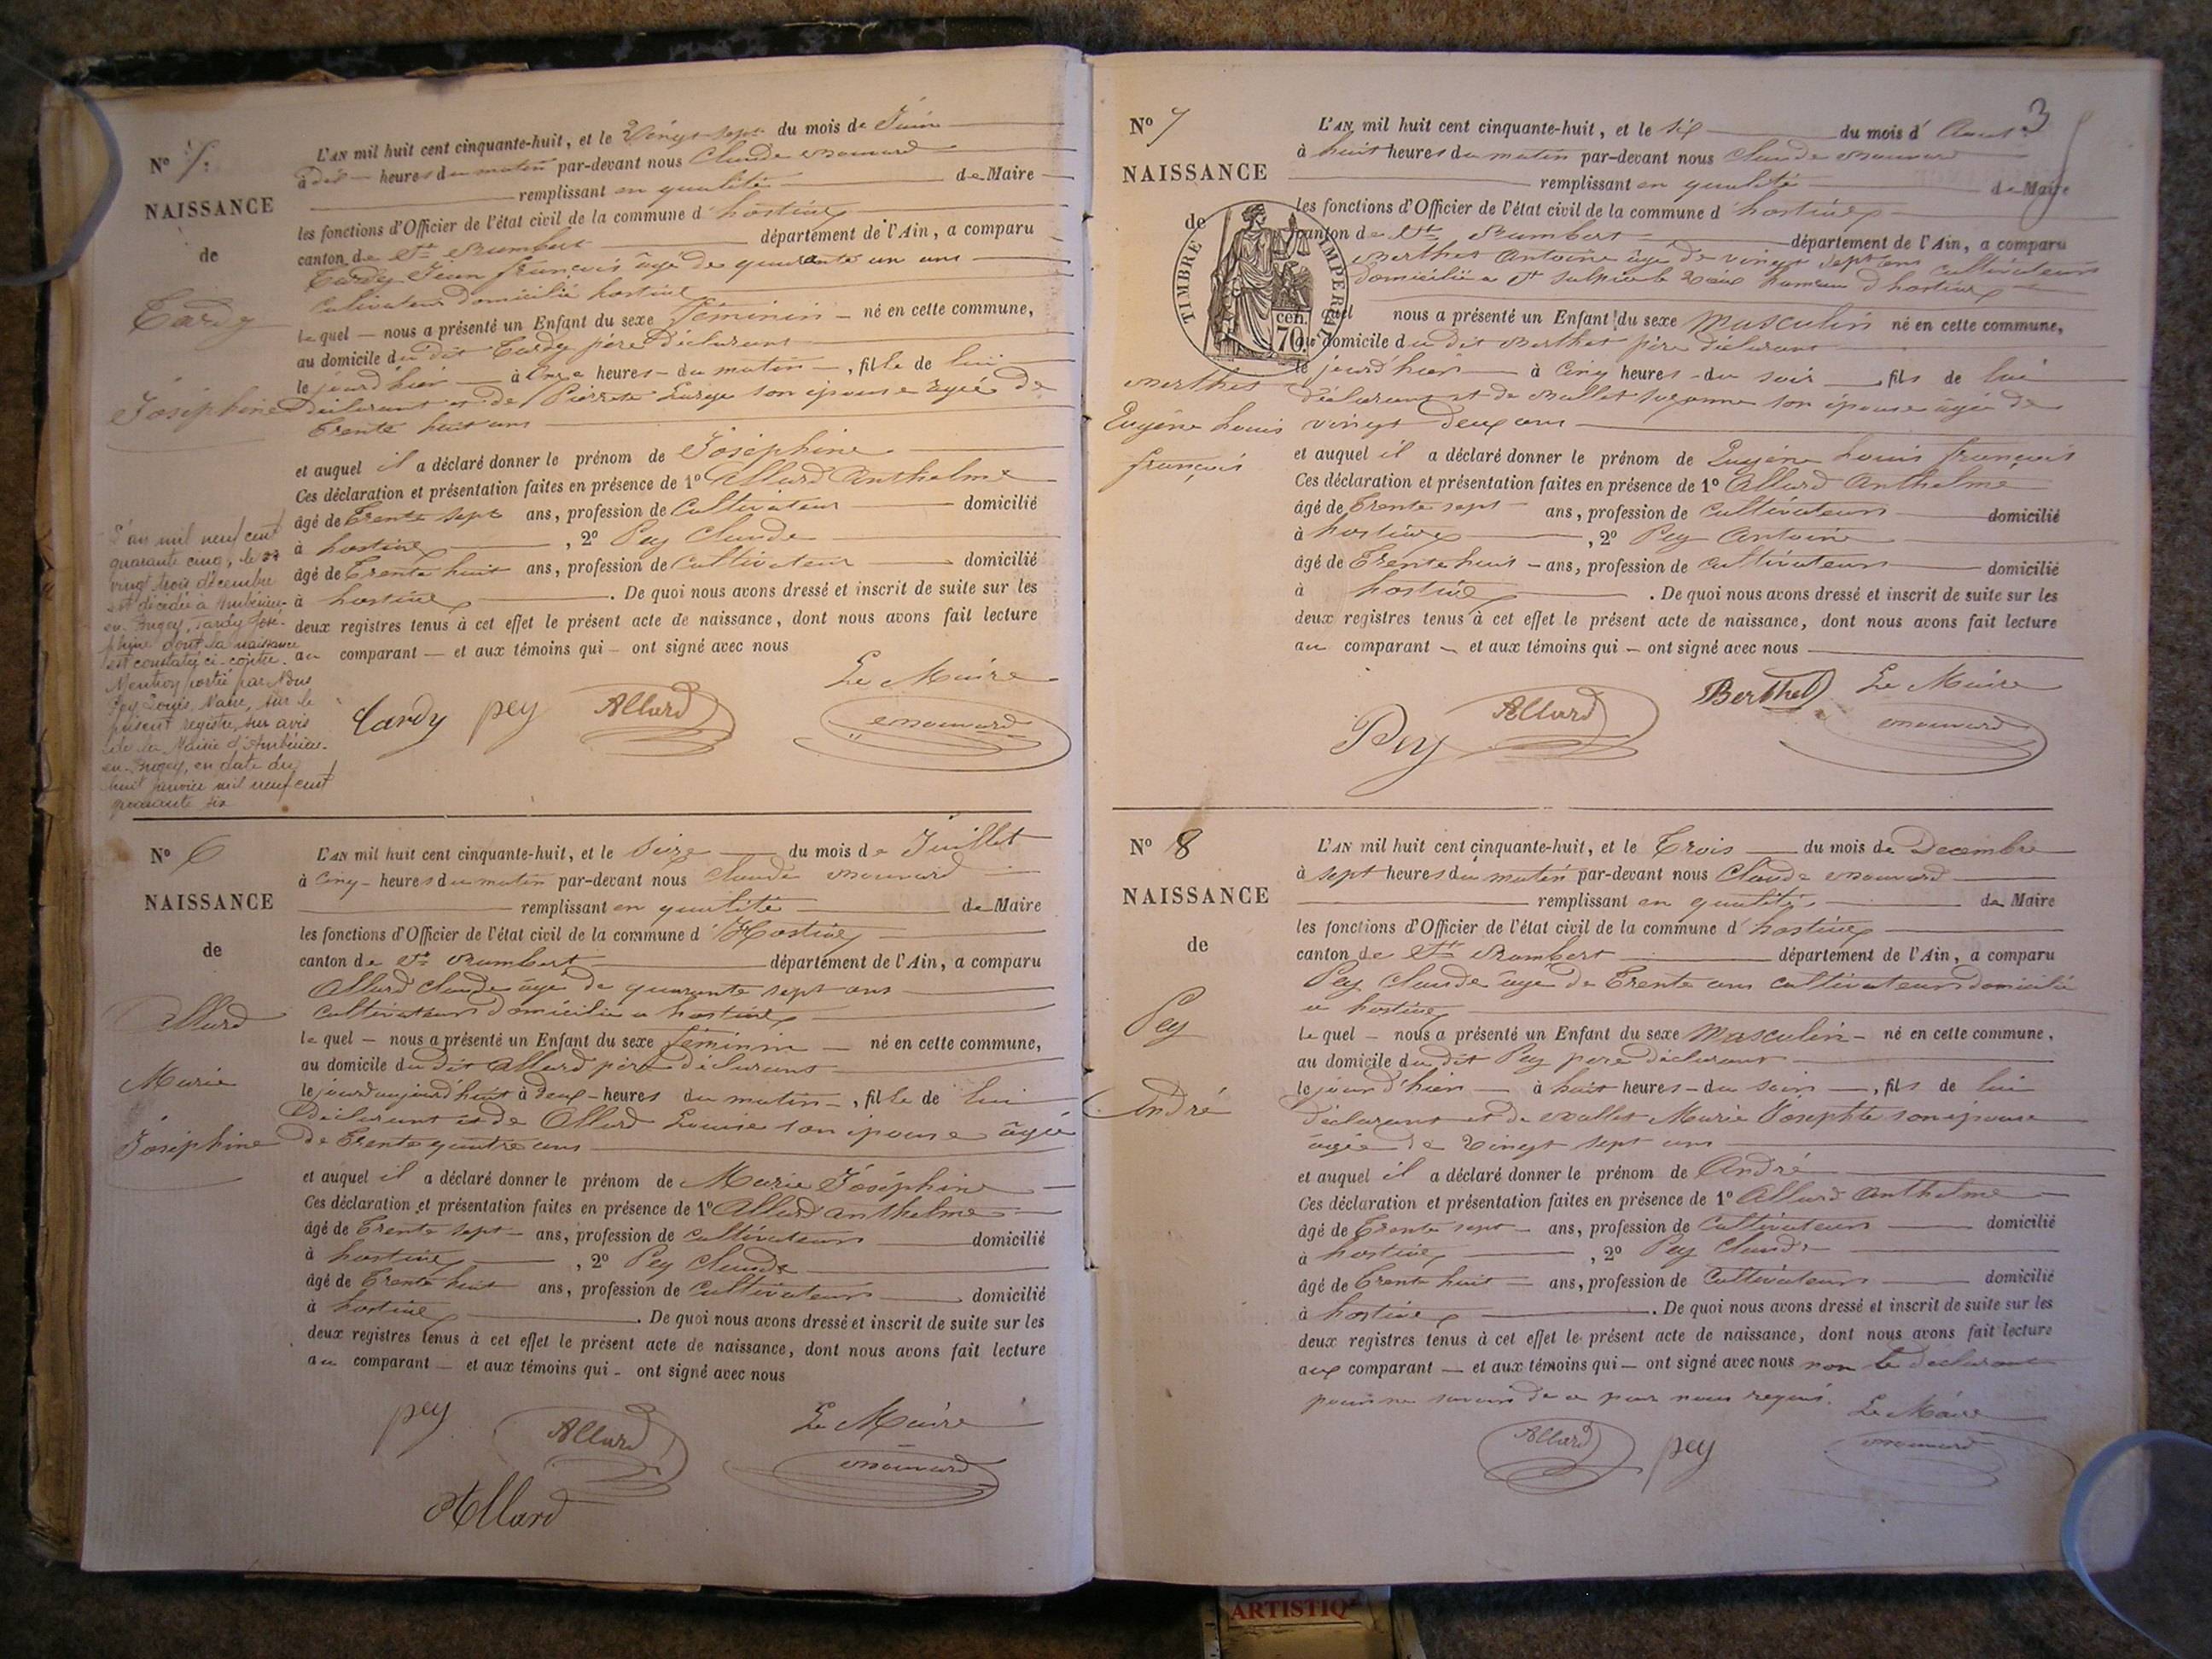 N° 5.
NAISSANCE
de
Tardy
Joséphine
L'AN mil huit cent cinquante-huit, et le Vingt sept du mois de Juin
à dix heures du matin par-devant nous Claude
remplissant en qualité de Maire
les fonctions d'Officier de l'état civil de la commune d'hostiaz
canton de St Rambert département de l'Ain, a comparu
Tardy Jean françois âgé de quarante un ans
Cultivateur domicilié hostiaz
le quel — nous a présenté un Enfant du sexe féminin — né en cette commune,
au domicile du dit Tardy père déclarant
le jourd'hier à onze heures du matin, fille de lui
déclarant et de Pierrette son épouse agée de
trente huit ans
et auquel il a déclaré donner le prénom de Joséphine
Ces déclaration et présentation faites en présence de 1° Allard Anthelme
âgé de trente sept ans, profession de Cultivateur domicilié
à hostiaz, 2° Pey Claude
âgé de trente huit ans, profession de Cultivateur domicilié
à hostiaz. De quoi nous avons dressé et inscrit de suite sur les
deux registres tenus à cet effet le présent acte de naissance, dont nous avons fait lecture
au comparant — et aux témoins qui — ont signé avec nous
Le Maire
Tardy pey Allard
L'an mil neuf cent
quarante cinq, le 23
vingt trois décembre
est décédée à Ambérieu-
en-Bugey, Tardy José-
phine dont la naissance
est constatée ci-contre.
Mention portée par Nous
Pey Louis, Maire, sur le
présent registre, sur avis
de la Mairie d'Ambérieu-
en-Bugey, en date du
huit janvier mil neuf cent
quarante six
N° 6
NAISSANCE
de
Allard
Marie
Joséphine
L'AN mil huit cent cinquante-huit, et le Seize du mois de Juillet
à cinq heures du matin par-devant nous Claude
remplissant en qualité de Maire
les fonctions d'Officier de l'état civil de la commune d'Hostiaz
canton de St Rambert département de l'Ain, a comparu
Allard Claude âgé de quarante sept ans
Cultivateur domicilié a hostiaz
le quel — nous a présenté un Enfant du sexe féminin — né en cette commune,
au domicile du dit Allard père déclarant
le jour aujourd'huit à deux heures du matin, fille de lui
déclarant et de Allard Louise son épouse âgée
de trente quatre ans
et auquel il a déclaré donner le prénom de Marie Joséphine
Ces déclaration et présentation faites en présence de 1° Allard anthelme
âgé de trente sept ans, profession de Cultivateur domicilié
à hostiaz, 2° Pey Claude
âgé de trente huit ans, profession de Cultivateur domicilié
à hostiaz. De quoi nous avons dressé et inscrit de suite sur les
deux registres tenus à cet effet le présent acte de naissance, dont nous avons fait lecture
au comparant — et aux témoins qui — ont signé avec nous
pey Allard Le Maire
Allard
3
N° 7
NAISSANCE
de
TIMBRE IMPERIAL
70 cen.
Berthet
Eugène Louis
françois
L'AN mil huit cent cinquante-huit, et le six du mois d'Aout
à huit heures du matin par-devant nous Claude
remplissant en qualité de Maire
les fonctions d'Officier de l'état civil de la commune d'hostiaz
canton de St Rambert département de l'Ain, a comparu
Berthet Antoine âgé de vingt sept ans cultivateur
domicilié a St Sulpice le vieux hameau d'hostiaz
quel nous a présenté un Enfant du sexe Masculin né en cette commune,
au domicile du dit Berthet père déclarant
le jourd'hier à Cinq heures du soir fils de lui
déclarant et de Ballet Suzanne son épouse âgée de
vingt deux ans
et auquel il a déclaré donner le prénom de Eugène Louis françois
Ces déclaration et présentation faites en présence de 1° Allard Anthelme
âgé de trente sept ans, profession de Cultivateur domicilié
à hostiaz, 2° Pey Antoine
âgé de trente huit ans, profession de Cultivateur domicilié
à hostiaz. De quoi nous avons dressé et inscrit de suite sur les
deux registres tenus à cet effet le présent acte de naissance, dont nous avons fait lecture
au comparant — et aux témoins qui — ont signé avec nous
Pey Allard Berthet Le Maire
N° 8
NAISSANCE
de
Pey
André
L'AN mil huit cent cinquante-huit, et le Trois du mois de Decembre
à sept heures du matin par-devant nous Claude
remplissant en qualité de Maire
les fonctions d'Officier de l'état civil de la commune d'hostiaz
canton de St Rambert département de l'Ain, a comparu
Pey Claude âgé de trente ans cultivateur domicilié
a hostiaz
le quel — nous a présenté un Enfant du sexe Masculin — né en cette commune,
au domicile du dit Pey père déclarant
le jour d'hier à huit heures du soir, fils de lui
déclarant et de Marie Josephte son épouse
âgée de vingt sept ans
et auquel il a déclaré donner le prénom de André
Ces déclaration et présentation faites en présence de 1° Allard Anthelme
âgé de trente sept ans, profession de Cultivateur domicilié
à hostiaz, 2° Pey Claude
âgé de trente huit ans, profession de Cultivateur domicilié
à hostiaz. De quoi nous avons dressé et inscrit de suite sur les
deux registres tenus à cet effet le présent acte de naissance, dont nous avons fait lecture
aux comparant — et aux témoins qui — ont signé avec nous non le déclarant
pour ne savoir de ce par nous requis.
Le Maire
Allard pey
ARTISTIQ